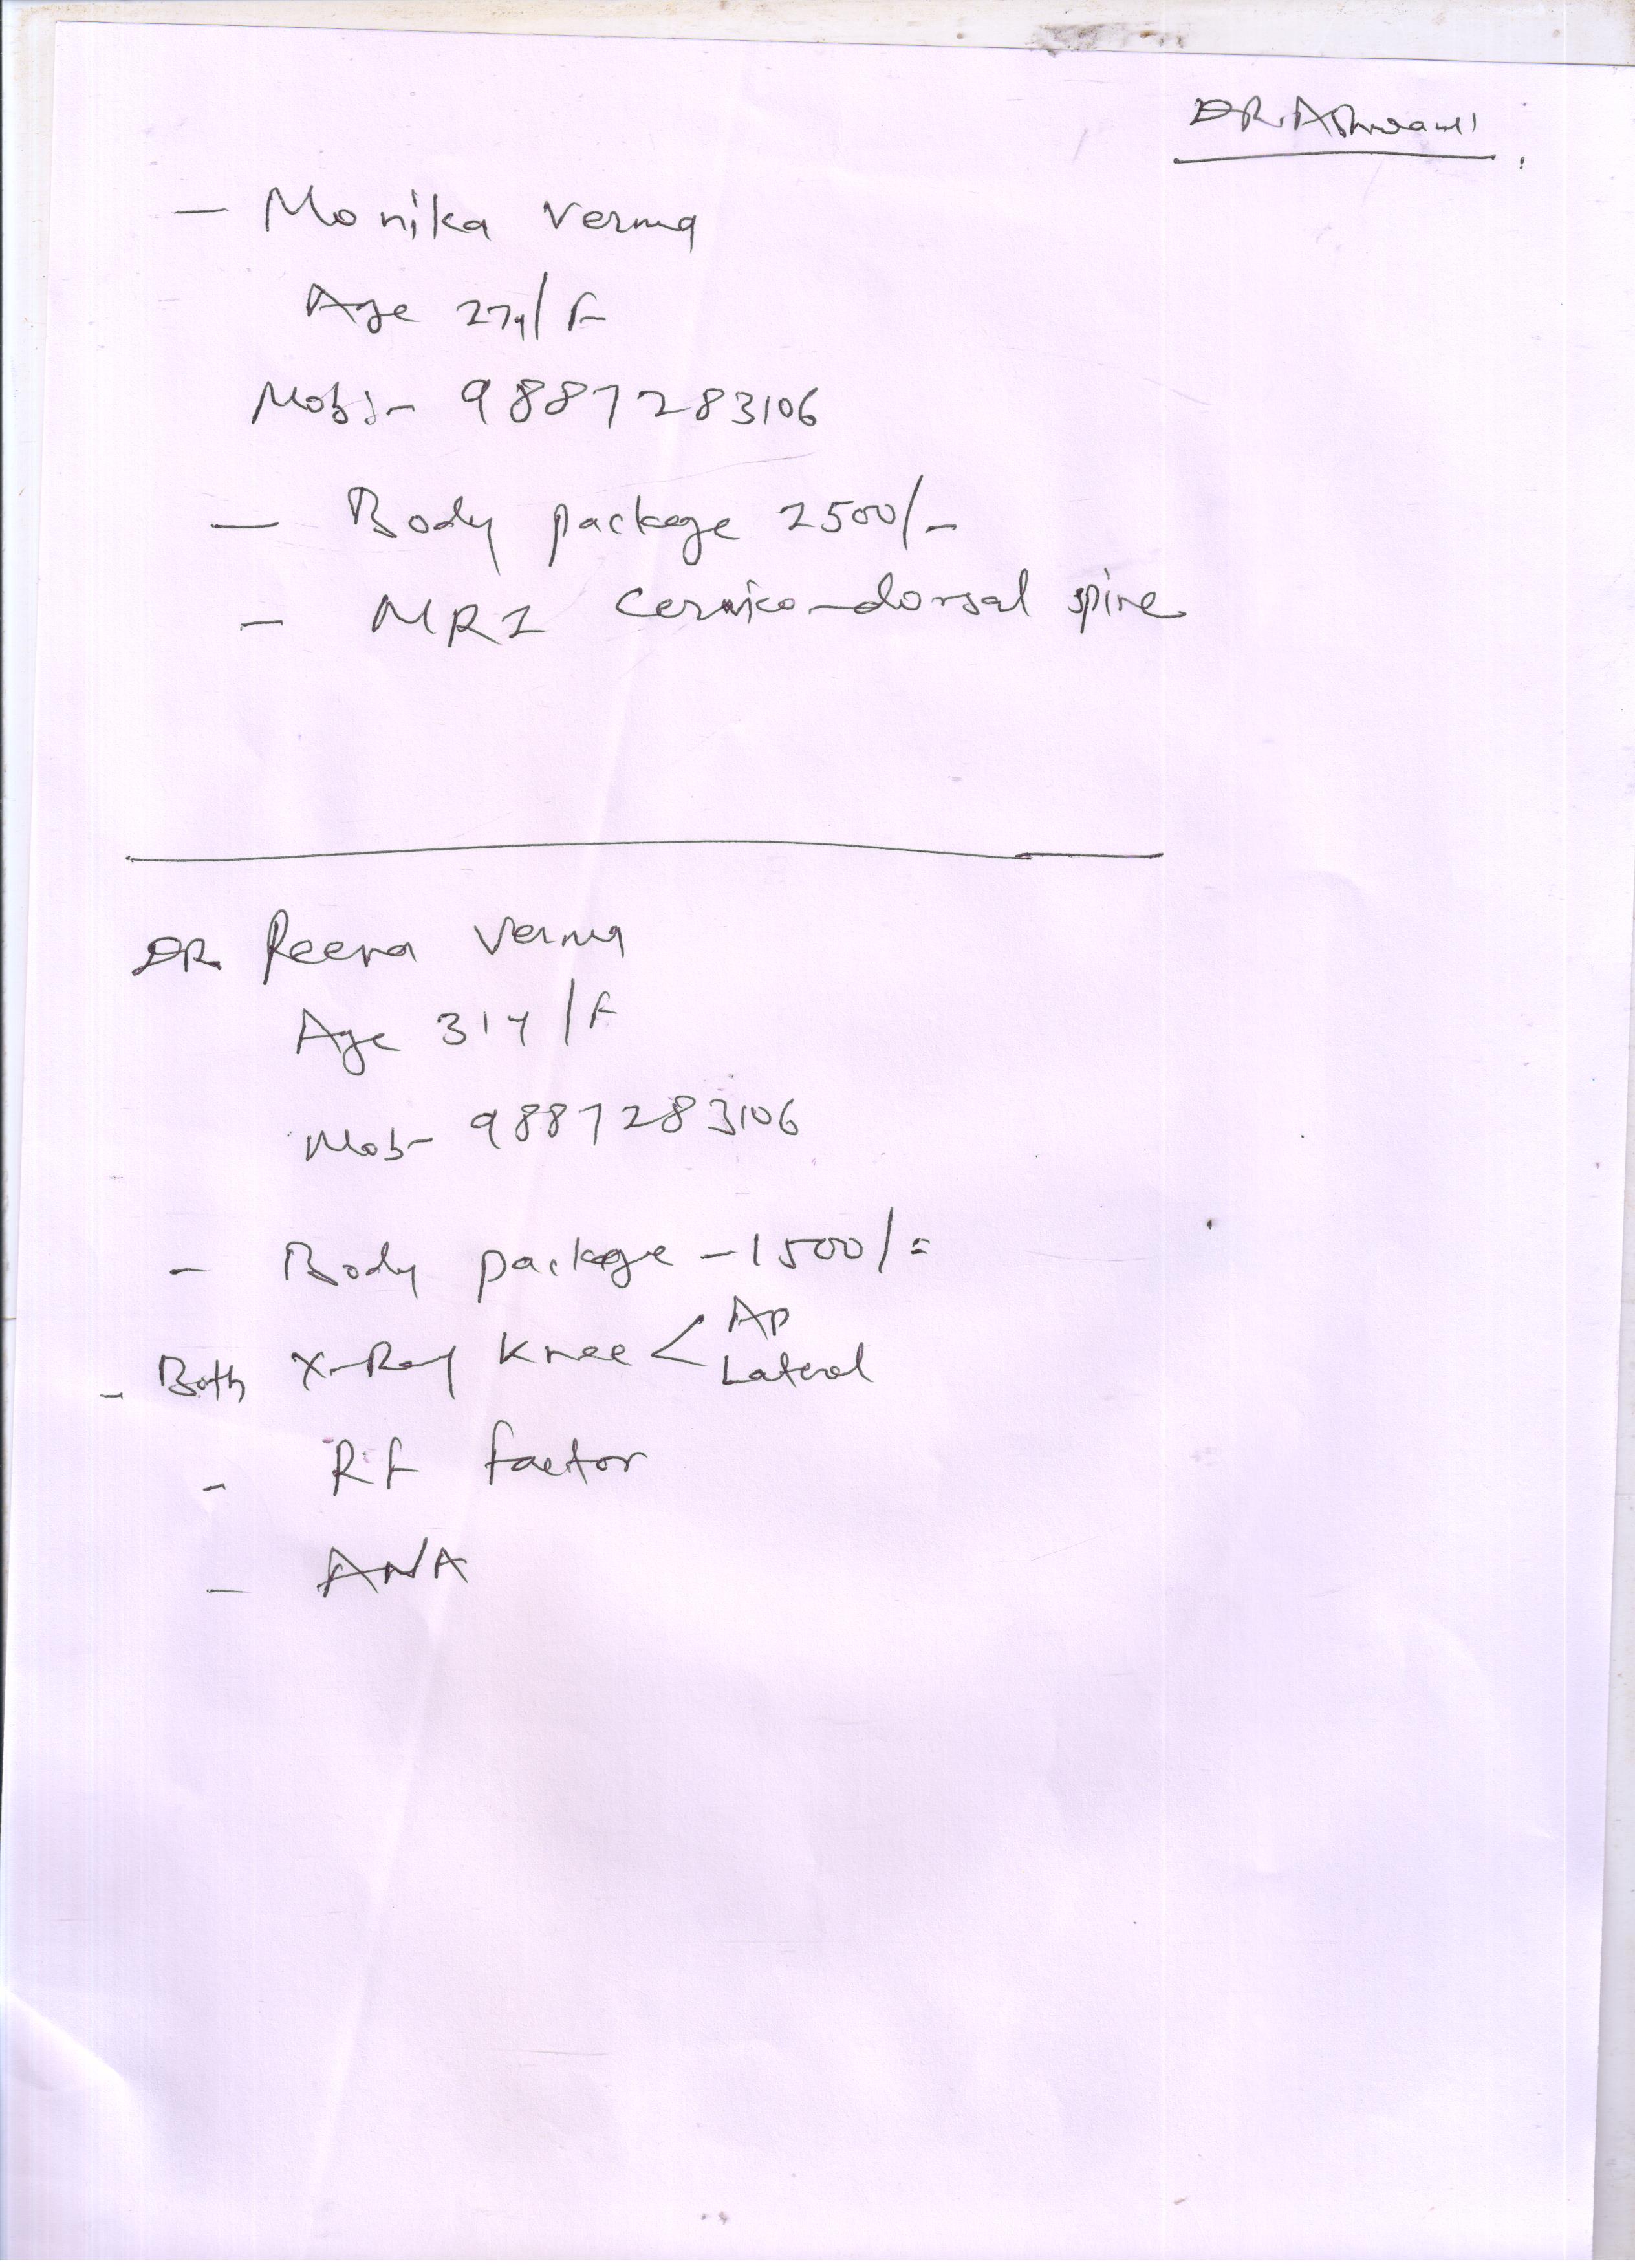 DR. Ashwani
- Monika Verma
Age 27y/F
Mob:- 9887283106
- Body package 2500/-
- MRI Cervico-dorsal spine
DR Reena Verma
Age 31y/F
Mob- 9887283106
- Body package - 1500/=
- Both X-Ray Knee < AP
Lateral
- RF factor
- ANA